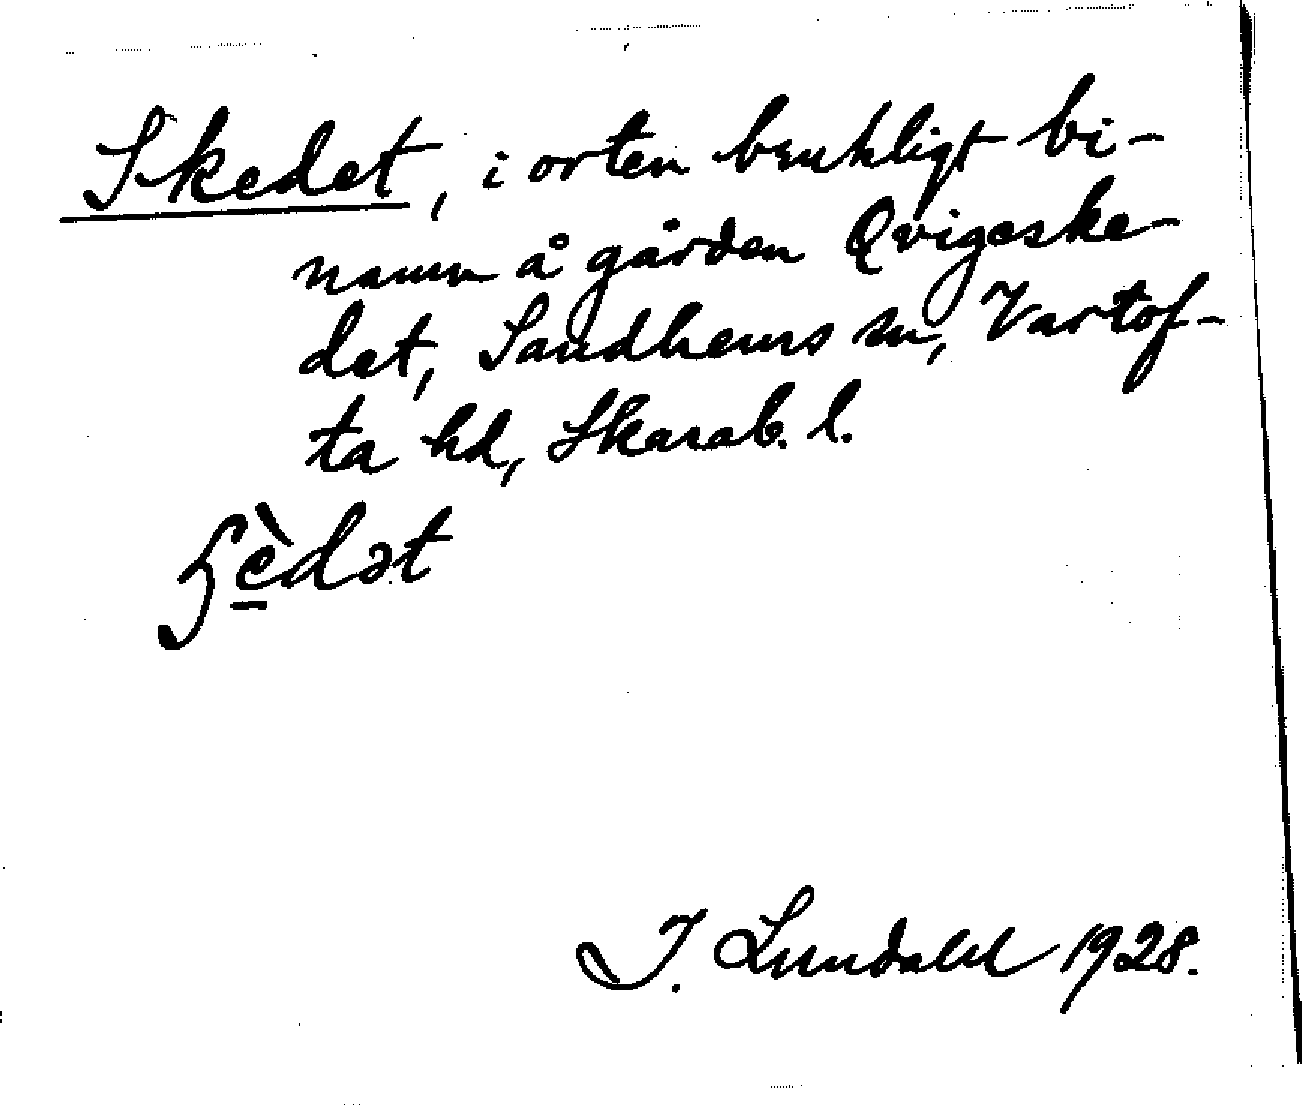 Skedet, i orten brukligt bi-
namn å gården Qvigeske-
det, Sandhems sn, Vartof-
ta hd, Skarab. l.
I. Lundahl 1928.